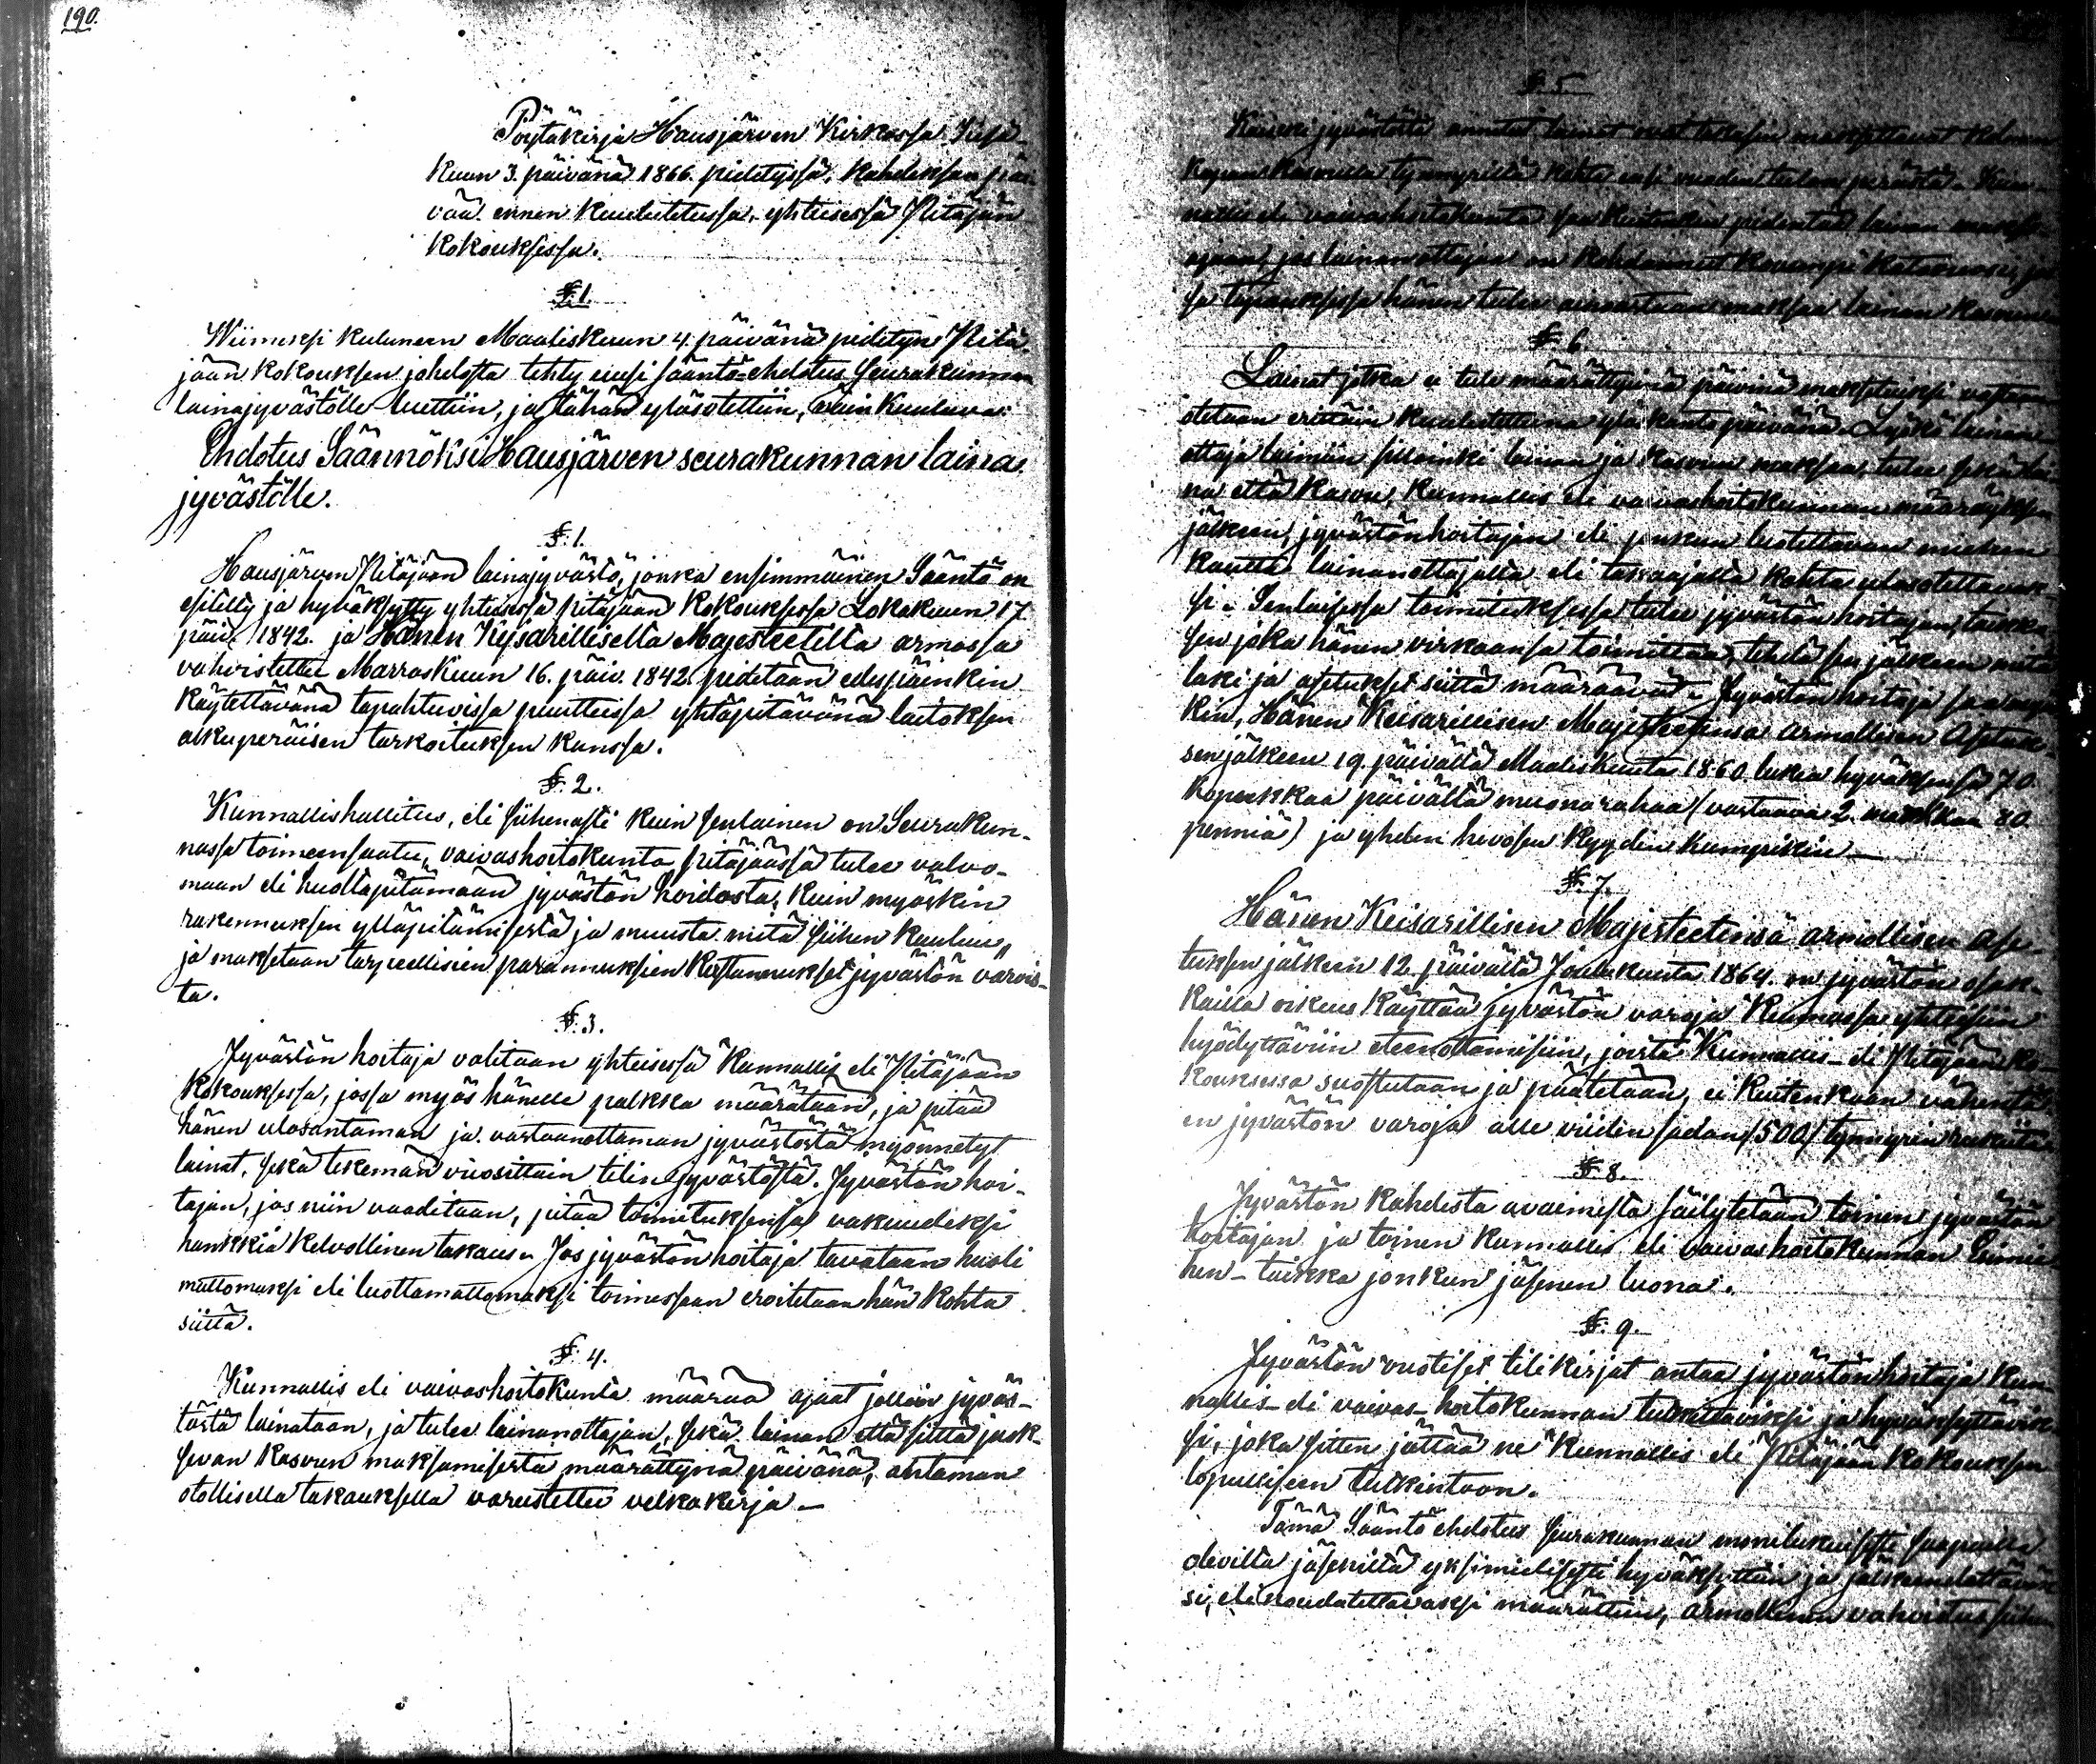 190.
Pöytäkirja Hausjärven Kirkossa Kesä-
kuun 3. päivänä 1866. pidetyssä, kahdeksan päi-
vää ennen kuulutetussa, yhteisessä Pitäjän
kokouksessa.
§ 1.
Wiimeksi kuluneen Maaliskuun 4. päivänä pidetyn Pitä-
jään kokouksen johdosta tehty uusi sääntö-ehdotus Seurakunnan
lainajyvästölle luettiin, ja tähän ylösotettiin, näin kuuluva:
Ehdotus Säännöksi Hausjärven seurakunnan laina
jyvästölle.
§. 1.
Hausjärven Pitäjään lainajyvästö, jonka ensimmäinen Sääntö on
esitelty ja hyväksytty yhteisessä pitäjään kokouksessa Lokakuun 17
päiv. 1842. ja Hänen Keisarilliselta Majesteetilta armossa
vahvistettu Marraskuun 16. päiv. 1842. pidetään edespäinkin
käytettävänä tapahtuvissa puutteissa yhtäpitävänä laitoksen
alkuperäisen tarkoituksen kanssa.
§. 2.
Kunnallishallitus, eli siihenasti kuin senlainen on Seurakun-
nassa toimeensaatu, vaivashoitokunta pitäjäässä tulee valvo-
maan eli huoltapitämään jyvästön hoidosta, kuin myöskin
rakennuksen ylläpitämisestä ja muusta mitä siihen kuuluu,
ja maksetaan tarpeellisien parannuksien kustannukset jyvästön varois-
ta.
§. 3.
Jyvästön hoitaja valitaan yhteisessä Kunnallis eli Pitäjään
kokouksessa, jossa myös hänelle palkka määrätään, ja pitää
hänen ulosantaman ja vastaanottaman jyvästöstä myönnetyt
lainat, sekä tekemän vuosittain tilin jyvästöstä. Jyvästön hoi-
tajan, jos niin vaaditaan, pitää toimituksensa vakuudeksi
hankkia kelvollinen takaus. Jos jyvästön hoitaja tavataan huoli
mattomaksi eli luottamattomaksi toimessaan eroitetaan hän kohta
siitä.
§. 4.
Kunnallis eli vaivashoitokunta määrää ajaat jolloin jyväs-
töstä lainataan, ja tulee lainanottajan, sekä lainan että siitä juok-
sevan kasvun maksamisesta määrättynä päivänä, antaman
otollisella takauksella varustettu velkakirja —
§ 5
Kaikki jyvästöstä annetut lainat ovat takasin maksettavat kolmen
kapan kasvulla tynnyriltä kohta uusi vuoden tulon perästä. Kun-
nallis eli vaivashoitokunta saa kuitenkin pidentää lainan maksu-
ajaan, jos lainanottajaa on kohdannut kovempi katovuosi, jos
sa tapauksessa hänen tulee ainoastaan maksaa lainan kasvun
§ 6
Lainat jotka ei tule määrättyinä päivinä maksetuiksi vastaan
otetaan erittäin kuulutettuna yläkantopäivänä. Lyökö lainan
ottaja laimiin silloinki lainan ja kasvun maksaa, tulee sekä lai
na että kasvu, kunnallis eli vaivashoitokunnan määräyksen
jälkeen, jyvästönhoitajan eli jonkun luotettavan miehen
kautta lainanottajalta eli takaajalta kohta ulosotettavak-
si. Senlaisessa toimituksessa tulee jyvästön hoitajan, taikka
sen joka hänen virkaansa toimittaa, tehdä sen jälkeen mitä
laki ja asetukset siitä määräävät. Jyvästön hoitaja saa myös
kin, Hänen Keisarillisen Majesteetinsa Armollisen Asetuk-
sen jälkeen 19. päivältä Maaliskuuta 1860 lukea hyväksensä 70
kopeekkaa päivältä muonarahaa (vastaava 2. markkaa 80
penniä) ja yhden hevosen kyydin kumpikin —
§. 7.
Hänen Keisarillisen Majesteetinsä armollisen ase-
tuksen jälkeen 12. päivältä Joulukuuta 1864. on jyvästön osak-
kailla oikeus käyttää jyvästön varoja Kunnassa yhteisiin
hyödyttäviin eteenottamisiin, joista Kunnallis- eli Pitäjään ko-
kouksessa suostutaan ja päätetään, ei kuitenkaan vähentä
en jyvästön varoja alle viiden sadan (500) tynnyrin rukiita.
§ 8.
Jyvästön kahdesta avaimesta säilytetään toinen jyvästön
hoitajan ja toinen kunnallis eli vaivashoitokunnan Esimie
hen- taikka jonkun jäsenen luona.
§. 9.
Jyvästön vuotiset tilikirjat antaa jyvästönhoitaja kun-
nallis- eli vaivas- hoitokunnan tutkittaviksi ja hyväksyttävik
si, joka sitten jättää ne Kunnallis eli Pitäjään kokouksen
lopulliseen tutkintoon.
Tämä Sääntö ehdotus Seurakunnan monilukuisesti saapuilla
olevilta jäseniltä yksimielisesti hyväksyttiin ja jälkeenelettäväk
si, eli noudatettavaksi määrättiin, armollinen vahvistus siihen